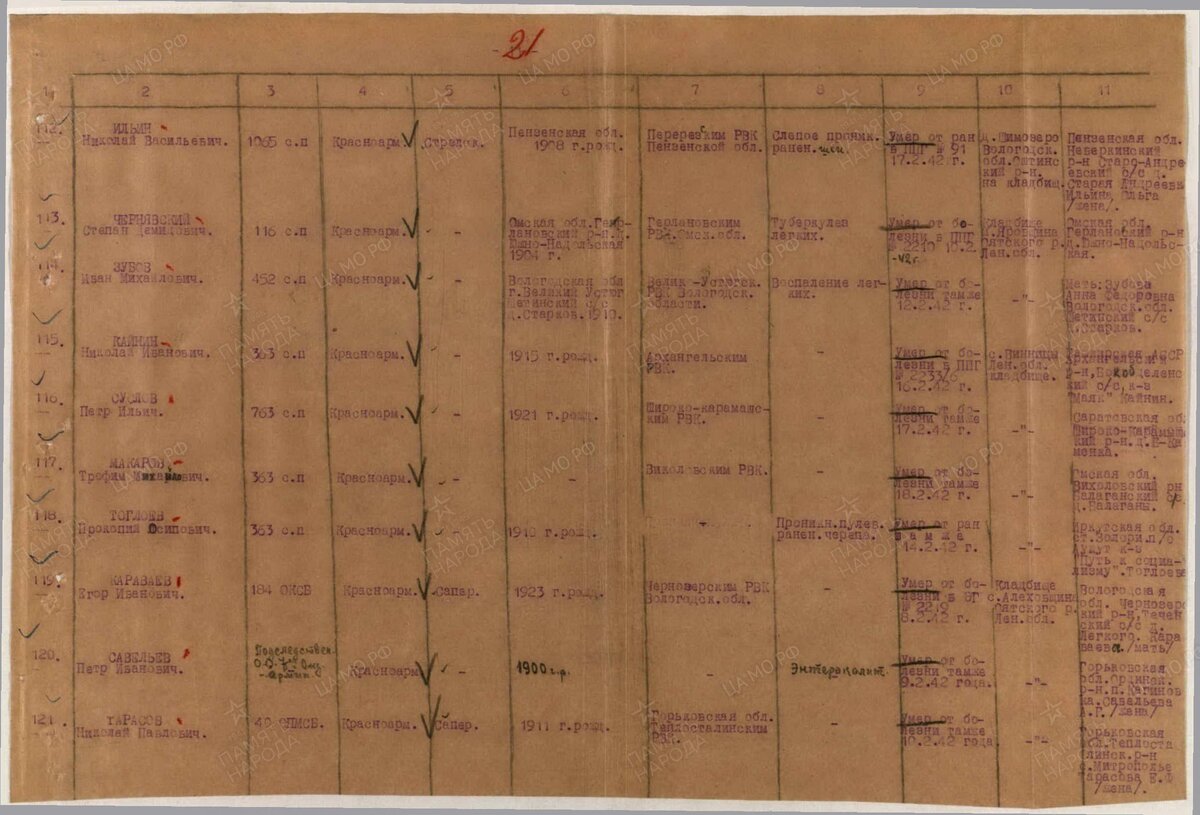 21
1 2 3 4 5 6 7 8 9 10 11
112. ИЛЬИН
Николай Васильевич. 1065 с.п Красноарм. Стрелок.
Пензенская обл.
1908 г.рожд.
Перерезким РВК
Пензенской обл.
Слепое проник.
ранен. шеи.
Умер от ран
в ППГ № 91
17.2.42 г.
д. Шимозеро
Вологодск.
обл.Оштинс
кий р-н.
на кладбищ.
Пензенская обл.
Неверкинский
р-н Старо-Андре
евский с/с д.
Старая Андреевк
Ильина Ольга
/жена/.
113. ЧЕРНЯВСКИЙ
Степан Демидович. 116 с.п Красноарм. -
Омская обл.
лановский р-н.
Южно-Надольская
1904 г.
Герлановским
РВК.Омск.обл.
Туберкулез
легких.
Умер от бо-
лезни в ППГ
№ 2219 10.2.
-42г.
Кладбище
Сятского р.
Лен.обл.
Омская обл.
Герланский р-н
д.Южно-Надольс-
кая.
114. ЗУБОВ
Иван Михайлович. 452 с.п Красноарм. -
Вологодская обл
г.Великий Устюг
с/с
д.Старков.1910.
Велико-Устюгск.
РВК Вологодск.
области.
Воспаление лег-
ких.
Умер от бо-
лезни тамже
12.2.42 г.
-"-
Мать:Зубова
Анна Федоровна
Вологодск.обл.
с/с
д.Старков.
115. КАЙНИН
Николай Иванович. 363 с.п Красноарм. -
1915 г.рожд.
Архангельским
РВК.
-
Умер от бо-
лезни в ППГ
№ 2233/6
16.2.42 г.
с.Винницы
Лен.обл.
кладбище.
Башкирская АССР
Архангельский
кий с/с,к-з
"Маяк" Кайнин.
116. СУСЛОВ
Петр Ильич. 763 с.п Красноарм. -
1921 г.рожд.
Широко-карамашс-
ким РВК.
-
Умер от бо-
лезни тамже
17.2.42 г.
-"-
Саратовская об
Широко-Карамыш
кий р-н.
менка.
117. МАКАРОВ
Трофим Михайлович. 363 с.п Красноарм. -
-
Викаловским РВК.
-
Умер от бо-
лезни тамже
18.2.42 г.
-"-
Омская обл.
Викаловский рн
Балаганский с/с
д.Балаганы.
118. ТОГЛОЕВ
Прокопий Осипович. 363 с.п Красноарм. -
1918 г.рожд.
-
Проникн.пулев.
ранен.черепа.
Умер от ран
тамже
14.2.42 г.
-"-
Иркутская обл.
"Путь к социа-
лизму".Тоглоева
119. КАРАВАЕВ
Егор Иванович. 184 ОКСБ Красноарм. Сапер.
1923 г.рожд.
Чернозерским РВК
Вологодск.обл.
-
Умер от бо-
лезни в ЭГ
№ 2219
8.2.42 г.
Кладбище
с.Алеховщина
Сятского р.
Лен.обл.
Вологодская
обл. Чернозерс
кий р-н,
ский с/с д.
Легкого. Кара
ваева /мать/
120. САВЕЛЬЕВ
Петр Иванович.
Подследствен.
армии
Красноарм. -
1900 г.р.
-
Энтероколит.
Умер от бо-
лезни тамже
9.2.42 года.
-"-
Горьковская
обл.Ординск.
р-н.п.Кагинов
ка.Савельева
А.Г./жена/
121. ТАРАСОВ
Николай Павлович. Красноарм. Сапер.
1911 г.рожд.
Горьковская обл.
Тепласталинским
РВК.
-
Умер от бо-
лезни тамже
10.2.42 года
-"-
Горьковская
обл.Теплоста
линск.р-н
с.Митрополье
Тарасова Е.Ф
/жена/.
ПАМЯТЬ
НАРОДА
ЦА МО РФ